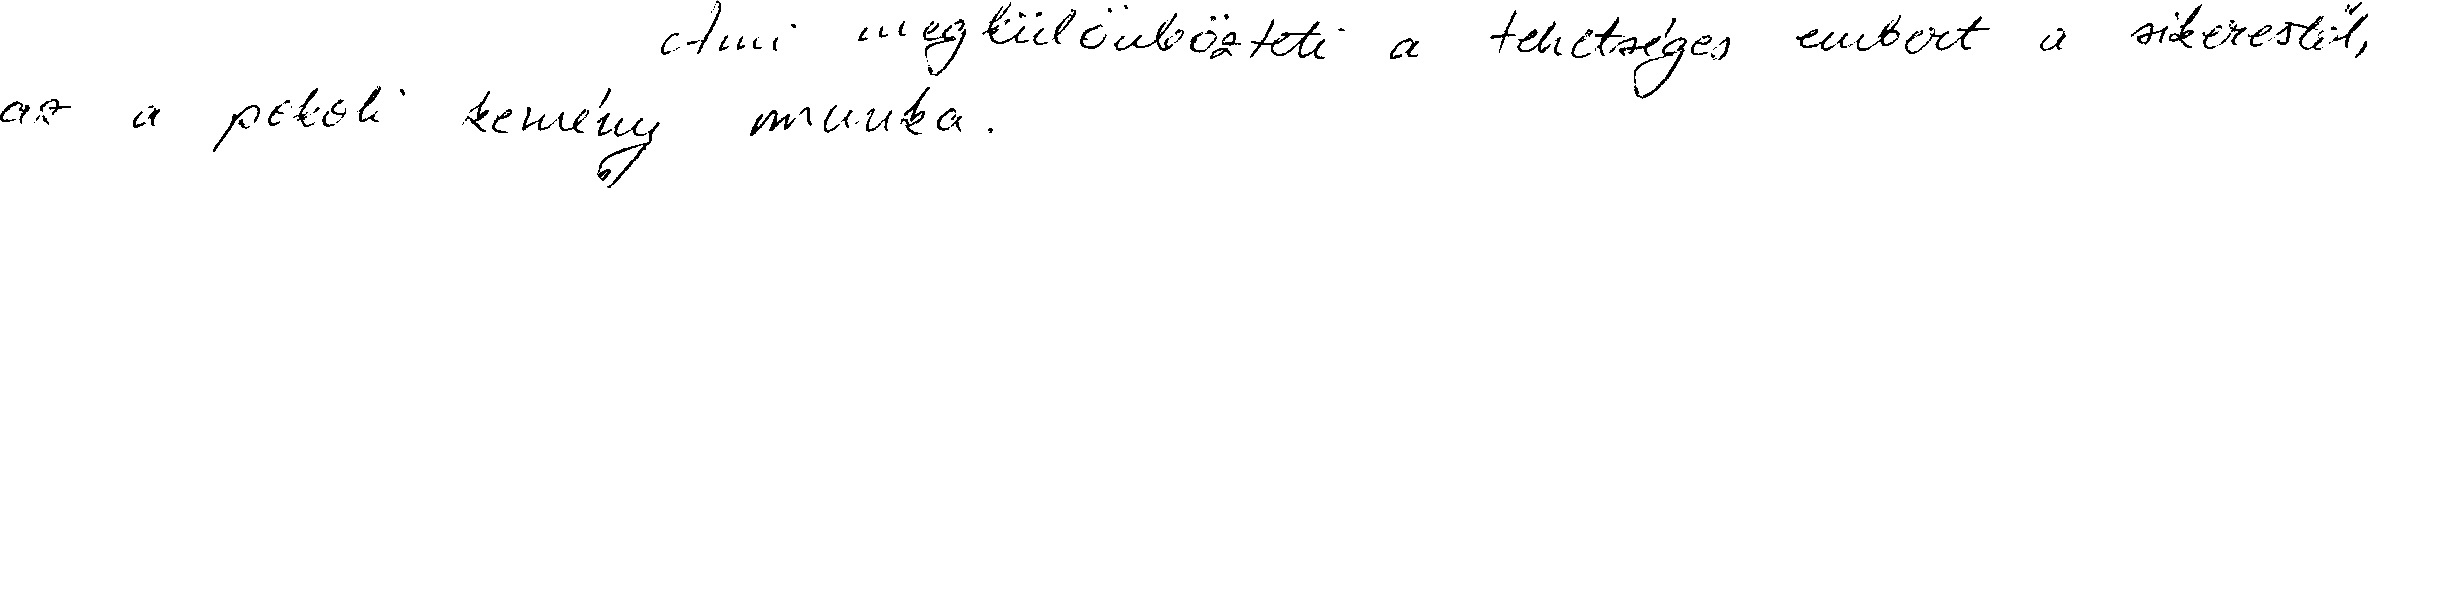 Ami megkülönbözteti a tehetséges embert a sikerestől,
az a pokoli kemény munka.